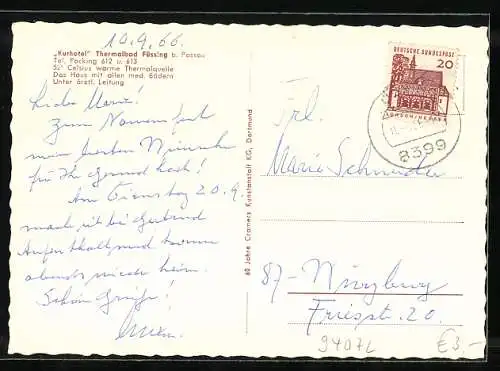 10.9.66.
„Kurhotel" Thermalbad Füssing b. Passau
Tel. Pocking 612 u. 613
52° Celsius warme Thermalquelle
Das Haus mit allen med. Bädern
Unter ärztl. Leitung
Liebe Marie!
Zum Namensfest
meine besten Wünsche
für Ihr
Am Dienstag 20.9.
mach ich bei Gertrud
Aufenthalt und komme
abends wieder heim.
Schöne Grüße!
60 Jahre Cramers Kunstanstalt KG, Dortmund
DEUTSCHE BUNDESPOST
20
8399
Frl.
Marie Schneider
87-Würzburg
Friesstr. 20.
9407L
€3,-